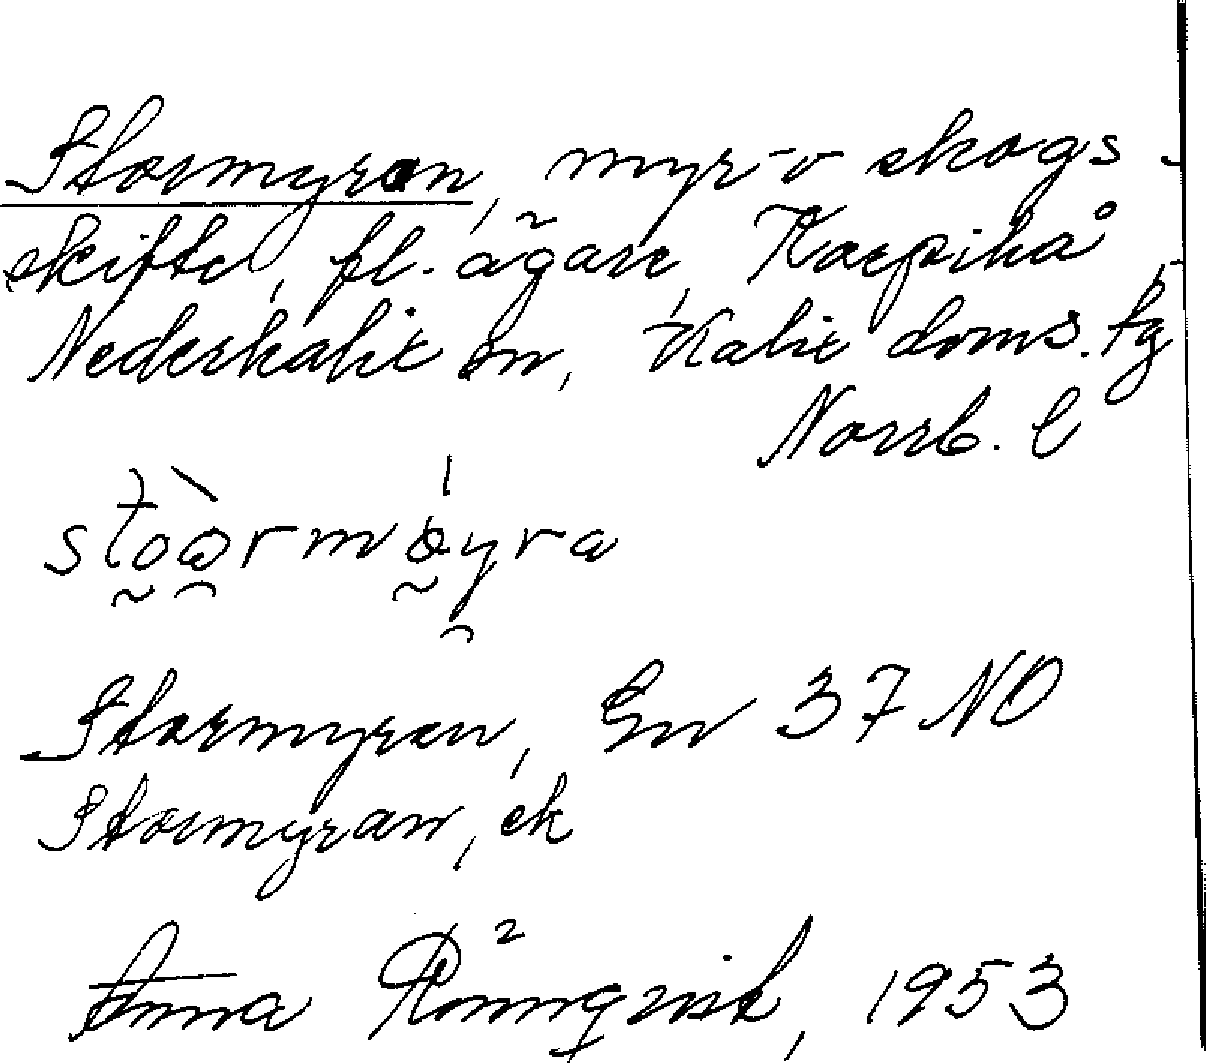 Stormyran, myr- o skogs-
skifte, fl. ägare, Karpikå,
Nederkalix sn, Kalix doms. tg
Norrb. l
stoωrmöyra
Stormyren, Gn 37 NO
Stormyran, ek
Anna Rönnqvist, 1953